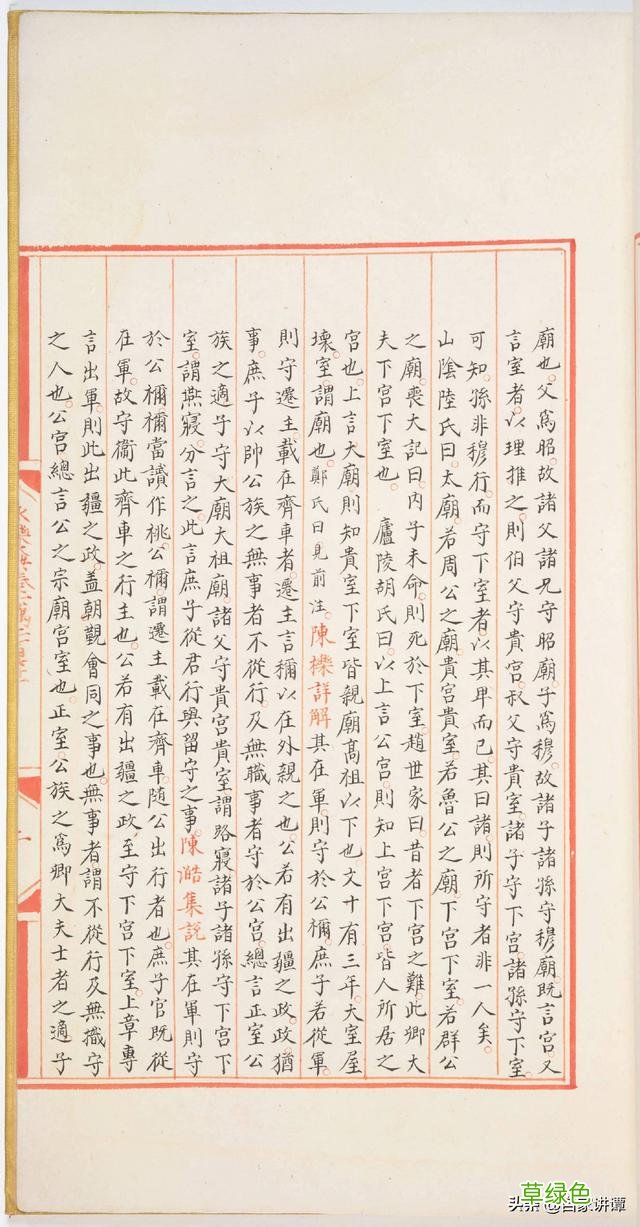 廟也父爲昭故諸父諸兄守昭廟子爲穆故諸子諸孫守穆廟既言宮又
言室者以理推之則伯父守貴宮叔父守貴室諸子守下宮諸孫守下室
可知孫非穆行而守下室者以其卑而已其曰諸則所守者非一人矣
山陰陸氏曰太廟若周公之廟貴宮貴室若魯公之廟下宮下室若群公
之廟喪大記曰內子未命則死於下室趙世家曰昔者下宮之難此卿大
夫下宮下室也 廬陵胡氏曰以上言公宮則知上宮下宮皆人所居之
宮也上言大廟則知貴室下室皆親廟高祖以下也文十有三年大室屋
壞室謂廟也鄭氏曰見前注陳櫟詳解其在軍則守於公禰庶子若從軍
則守遷主載在齊車者遷主言禰以在外親之也公若有出疆之政政猶
事庶子以帥公族之無事者不從行及無職事者守於公宮總言正室公
族之適子守大廟大祖廟諸父守貴宮貴室謂路寢諸子諸孫守下宮下
室謂燕寢分言之此言庶子從君行與留守之事陳澔集說其在軍則守
於公禰禰當讀作祧公禰謂遷主載在齊車隨公出行者也庶子官既從
在軍故守衞此齊車之行主也公若有出疆之政至守下宮下室上章專
言出軍則此出疆之政蓋朝覲會同之事也無事者謂不從行及無職守
之人也公宮總言公之宗廟宮室也正室公族之爲卿大夫士者之適子
草绿色
头条 @百家讲谭